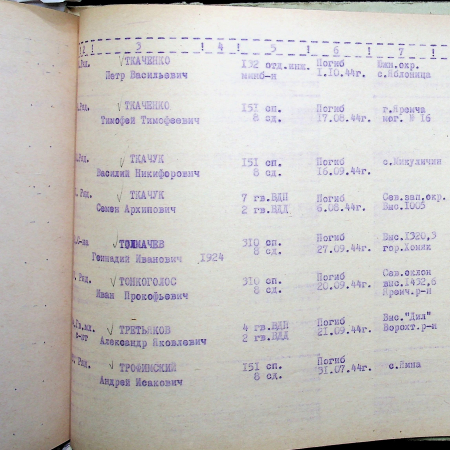 ! 3 ! 4 ! 5 ! 6 ! 7 !
.Ряд. ТКАЧЕНКО 132 отд.инж. Погиб Южн.окр.
Петр Васильевич минб-н 1.10.44г. с.Яблоница
.Ряд. ТКАЧЕНКО 151 сп. Погиб г.Яремча
Тимофей Тимофеевич 8 сд. 17.08.44г. мог. № 16
.Ряд. ТКАЧУК 151 сп. Погиб с.Микуличин
Василий Никифорович 8 сд. 16.09.44г.
. Ряд. ТКАЧУК 7 гв.ВДП Погиб Сев.зап.окр.
Семен Архипович 2 гв.ВДД 6.08.44г. Выс.1005
ТОЛМАЧЕВ 310 сп. Погиб Выс.1320,3
Геннадий Иванович 1924 8 сд. 27.09.44г. гор.Хомяк
. Ряд. ТОНКОГОЛОС 310 сп. Погиб Сев.склон
Иван Прокофьевич 8 сд. 20.09.44г. выс.1432,6
Яремч.р-н
.Гв.мл. ТРЕТЬЯКОВ 4 гв.ВДП Погиб Выс."Дил"
с-нт Александр Яковлевич 2 гв.ВДД 21.09.44г. Ворохт.р-н
. Ряд. ТРОФИНСКИЙ 151 сп. Погиб с.Ямна
Андрей Исакович 8 сд. 31.07.44г.